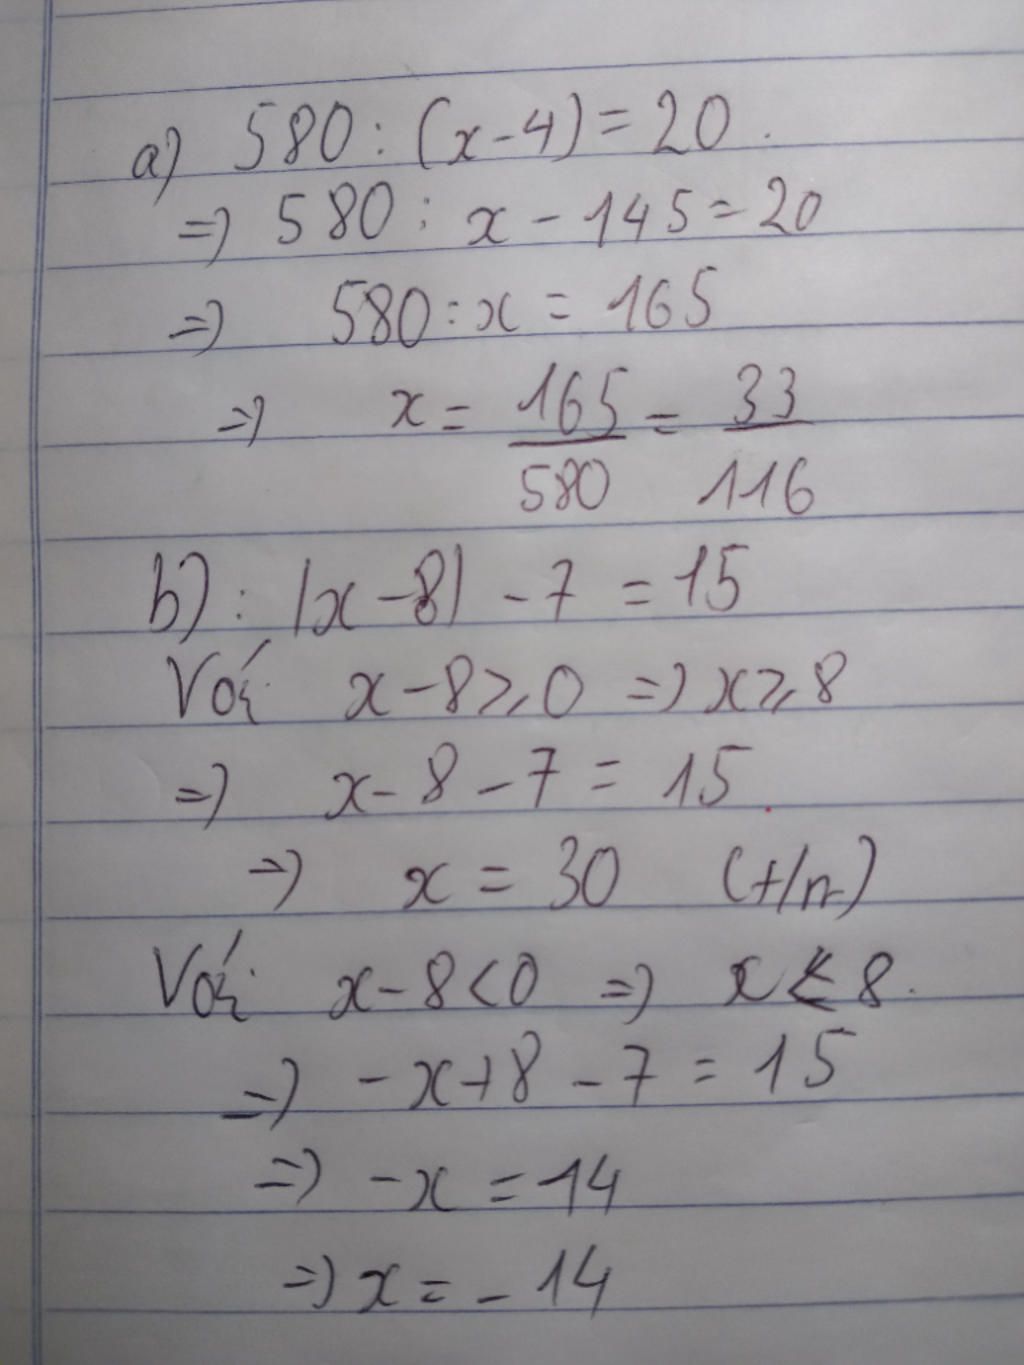 a) 580 : (x - 4) = 20 .
=> 580 : x - 145 = 20
=> 580 : x = 165
=> x = 165/580 = 33/116
b) : |x - 8| - 7 = 15
Với x - 8 ≥ 0 => x ≥ 8
=> x - 8 - 7 = 15
=> x = 30 (t/m)
Với x - 8 < 0 => x < 8.
=> - x + 8 - 7 = 15
=> - x = 14
=> x = - 14